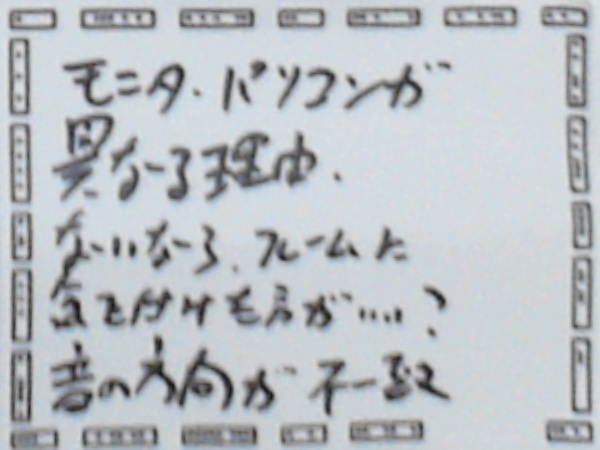 モニタ・パソコンが
異なる理由.
ないなら、フレームに
気を付けた方がいい?
音の方向が不一致